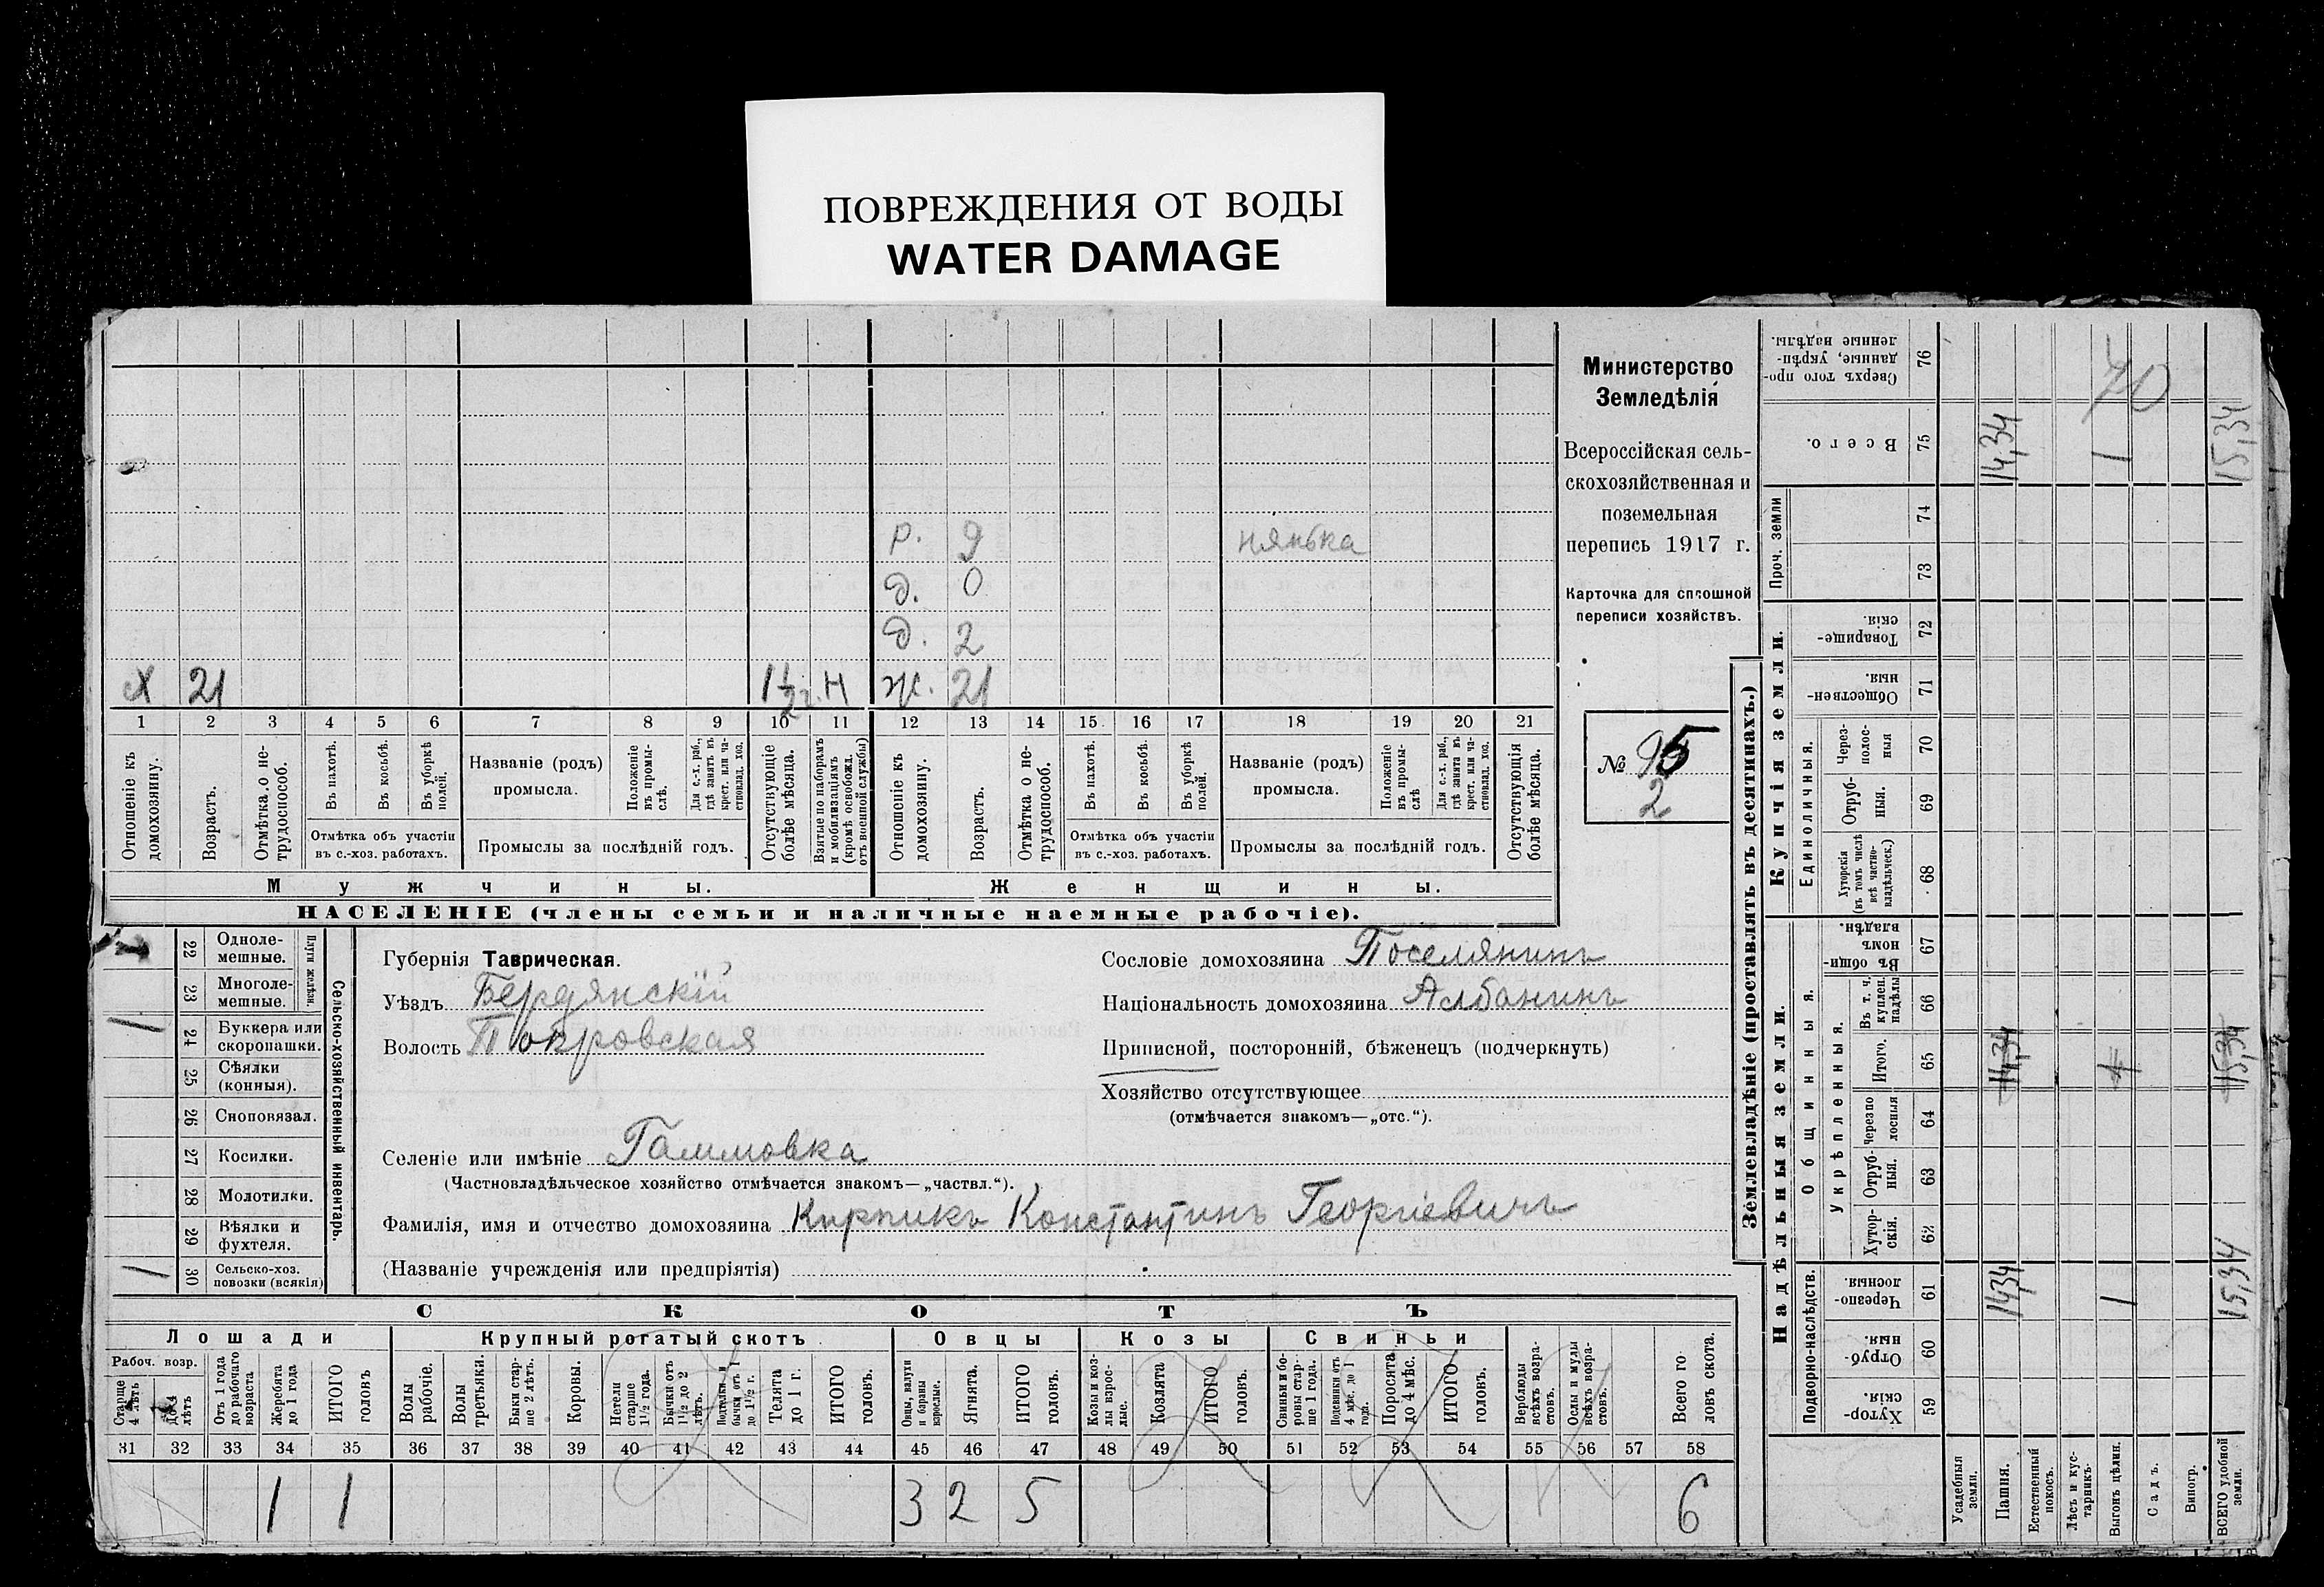 ПОВРЕЖДЕНИЯ ОТ ВОДЫ
WATER DAMAGE
Министерство
Земледѣлія
Всероссійская сель-
скохозяйственная и
поземельная
перепись 1917 г.
Карточка для сплошной
переписи хозяйствъ.
№ 95
2
р. 9 нянька
д. 0
д. 2
Х 21 1½ г. Н ж. 21
1 2 3 4 5 6 7 8 9 10 11 12 13 14 15 16 17 18 19 20 21
Отношеніе къ домохозяину.
Возрастъ.
Отмѣтка о не-трудоспособ.
Въ пахотѣ.
Въ косьбѣ.
Въ уборкѣ полей.
Отмѣтка объ участіи
въ с.-хоз. работахъ.
Названіе (родъ)
промысла.
Положеніе въ промы-слѣ.
Для с.-х. раб., гдѣ занятъ въ крест. или ча-стновлад. хоз.
Промыслы за послѣдній годъ.
Отсутствующіе болѣе мѣсяца.
Взятые по наборамъ и мобилизаціямъ (кромѣ освобожд. отъ военной службы)
Отношеніе къ домохозяину.
Возрастъ.
Отмѣтка о не-трудоспособ.
Въ пахотѣ.
Въ косьбѣ.
Въ уборкѣ полей.
Отмѣтка объ участіи
въ с.-хоз. работахъ.
Названіе (родъ)
промысла.
Положеніе въ промы-слѣ
Для с.-х. раб., гдѣ занята въ крест. или ча-стновлад. хоз.
Промыслы за послѣдній годъ.
Отсутствующія болѣе мѣсяца.
Мужчины.
Женщины.
НАСЕЛЕНІЕ (члены семьи и наличные наемные рабочіе).
Сельско-хозяйственный инвентарь.
Плуги желѣзн.
1 22 Одноле-мешные.
23 Многоле-мешные.
1 24 Буккера или скоропашки.
25 Сѣялки (конныя).
26 Сноповязал.
27 Косилки.
28 Молотилки.
29 Вѣялки и фухтеля.
1 30 Сельско-хоз. повозки (всякія)
Губернія Таврическая.
Уѣздъ Бердянскій
Волость Покровская
Сословіе домохозяина Поселянинъ
Національность домохозяина Албанинъ
Приписной, посторонній, бѣженецъ (подчеркнуть)
Хозяйство отсутствующее
(отмѣчается знакомъ—„отс.“).
Селеніе или имѣніе Гаммовка
(Частновладѣльческое хозяйство отмѣчается знакомъ—„частвл.“).
Фамилія, имя и отчество домохозяина Кирпикъ Константинъ Георгіевичъ
(Названіе учрежденія или предпріятія)
СКОТЪ
Лошади
Крупный рогатый скотъ
Овцы
Козы
Свиньи
Рабоч. возр.
Старше 4 лѣтъ
до 4 лѣтъ
Отъ 1 года до рабочаго возраста
Жеребята до 1 года
ИТОГО головъ
Волы рабочіе.
Волы третьяки.
Быки стар-ше 2 лѣтъ.
Коровы.
Нетели старше 1½ года.
Бычки отъ 1½ до 2 лѣтъ.
Подтелки и бычки отъ 1 до 1½ г.
Телята до 1 г.
ИТОГО головъ.
Овцы, валухи и бараны взрослые.
Ягнята.
ИТОГО головъ.
Козы и коз-лы взрос-лые.
Козлята
ИТОГО головъ.
Свиньи и бо-ровы стар-ше 1 года.
Подсвинки отъ 4 мѣс. до 1 года.
Поросята до 4 мѣс.
ИТОГО головъ.
Верблюды всѣхъ возра-стовъ.
Ослы и мулы всѣхъ возра-стовъ.
Всего го-ловъ скота.
31 32 33 34 35 36 37 38 39 40 41 42 43 44 45 46 47 48 49 50 51 52 53 54 55 56 57 58
1 1 3 2 5 6
Землевладѣніе (проставлять въ десятинахъ.)
Надѣльныя земли.
Купчія земли.
Проч. земли
Подворно-наслѣдств.
Общинныя.
Укрѣпленныя.
Единоличныя.
Сверхъ того про-данные, укрѣп-ленные надѣлы. 76
Всего. 75
74
73
Товарище-скія. 72
Обществен-ныя. 71
Через-полос-ныя 70
Отруб-ныя. 69
Хуторскія (въ томъ числѣ всѣ частно-владѣльческ.) 68
Въ общин-номъ владѣн. 67
Въ т. ч. куплен. надѣлы 66
Итого. 65
Черезпо лосныя 64
Отруб-ныя. 63
Хутор-скія. 62
Черезпо-лосныя. 61
Отруб-ныя. 60
Хутор-скія. 59
70
14,34 1 15,34
14,34 1 15,34
14,34 1 15,34
Усадебныя земли.
Пашня.
Естественный покосъ.
Лѣсъ и кус-тарникъ.
Выгонъ цѣлин.
Садъ.
Виногр.
ВСЕГО удобной земли.